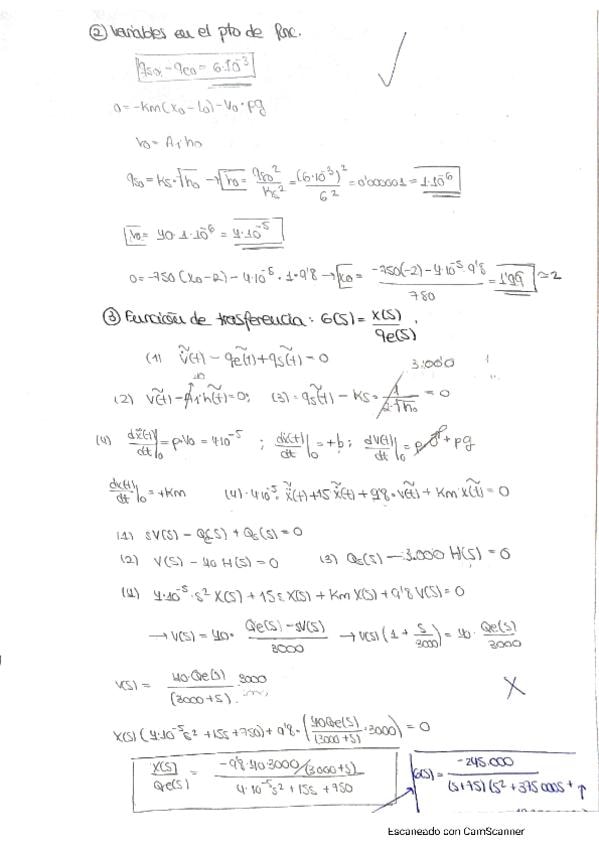 ② Variables en el pto de Fnc.
qso - qeo = 6·10⁻³
0 = -Km(xo - lo) - Vo·ρg
Vo = A₁·ho
qso = Ks·√ho → ho = qso²/Ks² = (6·10⁻³)²/6² = 0'000001 = 1·10⁻⁶
Vo = 40·1·10⁻⁶ = 4·10⁻⁵
0 = -750(xo-2) - 4·10⁻⁵·1·9'8 → xo = (-750(-2) - 4·10⁻⁵·9'8)/750 = 1'99 ≃ 2
③ Función de trasferencia: G(s) = X(s)/qe(s).
(1) ṽ̇(t) - q̃e(t) + q̃s(t) = 0
3.000
(2) ṽ(t) - A₁·h̃(t) = 0; (3) = q̃s(t) - Ks· 1/(2·√ho) = 0
(4) dẍ(t)/dt|₀ = ρ·Vo = 4·10⁻⁵ ; dẋ(t)/dt|₀ = +b; dV(t)/dt|₀ = + ρg
dx(t)/dt|₀ = +Km (4)· 4·10⁻⁵·ẍ̃(t) + 15 ẋ̃(t) + 9'8·ṽ(t) + Km·x̃(t) = 0
(1) sV(s) - Qe(s) + Qs(s) = 0
(2) V(s) - 40 H(s) = 0 (3) Qs(s) - 3.000 H(s) = 0
(4) 4·10⁻⁵·s² X(s) + 15s X(s) + Km X(s) + 9'8 V(s) = 0
→ V(s) = 40· (Qe(s) - sV(s))/3000 → V(s)(1 + s/3000) = 40· Qe(s)/3000
V(s) = 40·Qe(s)/(3000+s) · 3000
X(s)(4·10⁻⁵s² + 15s + 750) + 9'8·(40Qe(s)/(3000+s)·3000) = 0
X(s)/Qe(s) = (-9'8·40·3000/(3000+s))/(4·10⁻⁵s² + 15s + 750)
G(s) = -245.000/((s+75)(s² + 375000s +
Escaneado con CamScanner